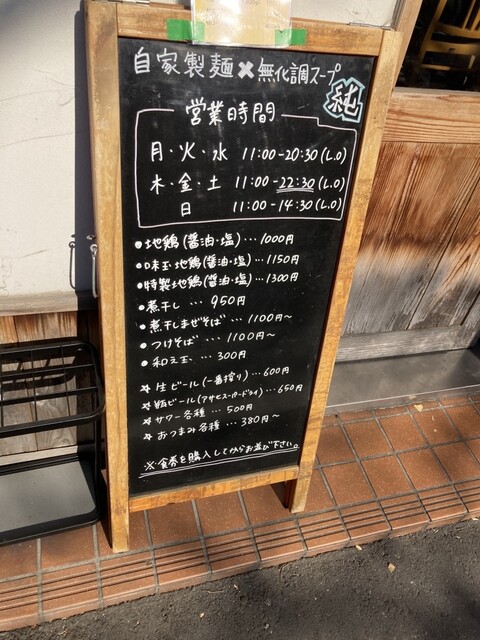 自家製麺✖無化調スープ
純
営業時間
月・火・水 11:00-20:30(L.O)
木・金・土 11:00-22:30(L.O)
日 11:00-14:30(L.O)
●地鶏(醤油・塩)…1000円
●味玉地鶏(醤油・塩)…1150円
●特製地鶏(醤油・塩)…1300円
●煮干し…950円
●煮干しまぜそば…1100円～
●つけそば…1100円～
●和え玉…300円
☆生ビール(一番搾り)…600円
☆瓶ビール(アサヒスーパードライ)…650円
☆サワー各種…500円
☆おつまみ各種…380円～
※食券を購入してからお並び下さい。